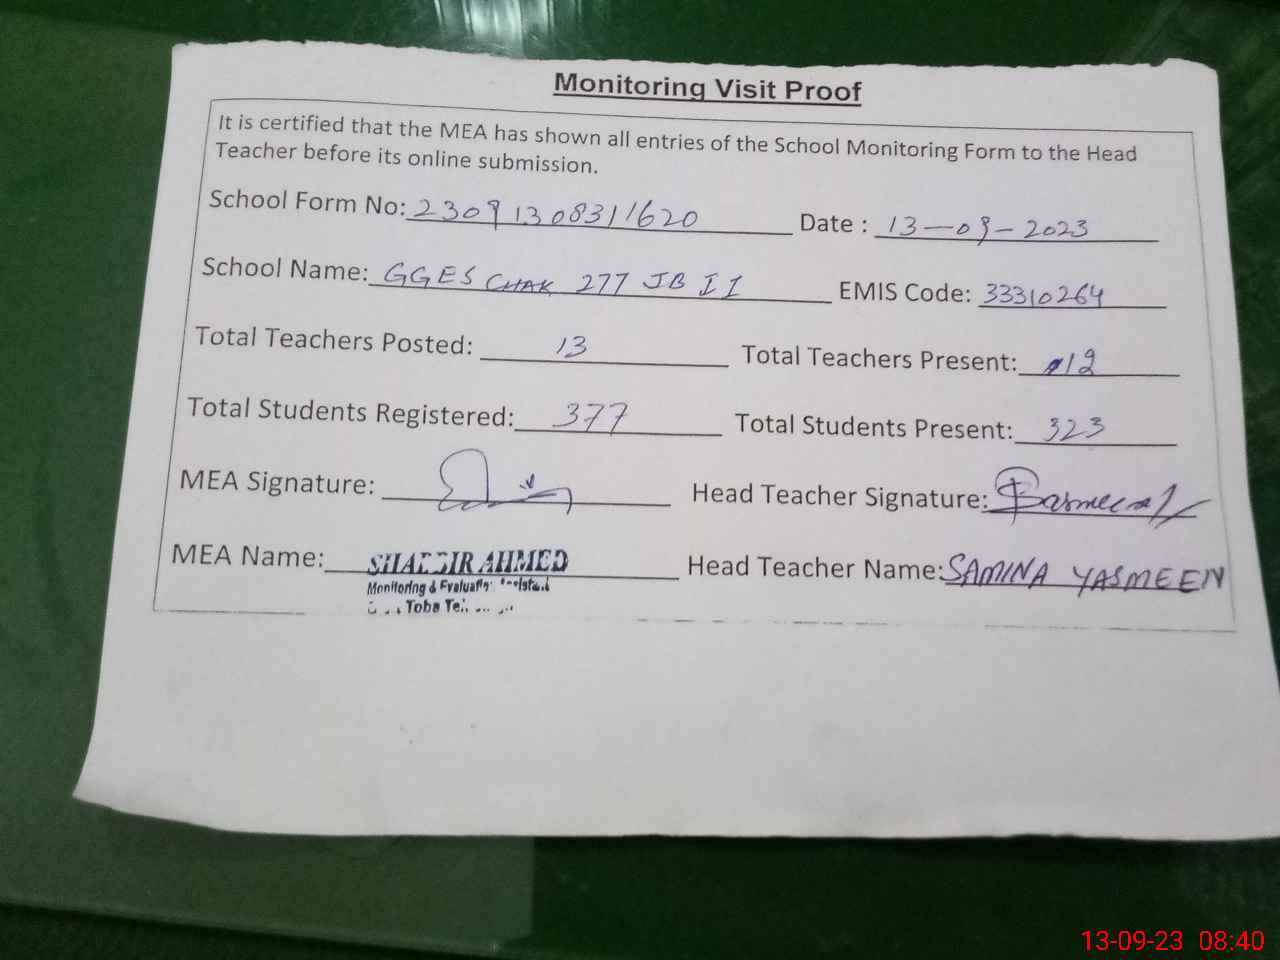 Monitoring Visit Proof
It is certified that the MEA has shown all entries of the School Monitoring Form to the Head
Teacher before its online submission.
School Form No: 230913083111620 Date : 13-09-2023
School Name: GGES CHAK 277 JB II EMIS Code: 33310264
Total Teachers Posted: 13 Total Teachers Present: 12
Total Students Registered: 377 Total Students Present: 323
MEA Signature: Head Teacher Signature:
MEA Name: SHABBIR AHMED Head Teacher Name: SAMINA YASMEEN
Monitoring &
Toba
13-09-23 08:40